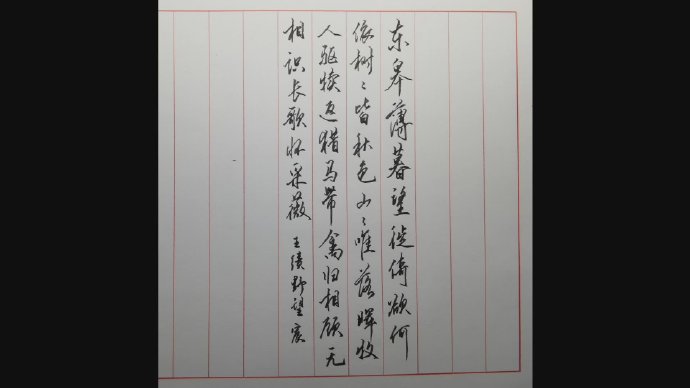 东皋薄暮望徙倚欲何
依树〻皆秋色山〻唯落晖牧
人驱犊返猎马带禽归相顾无
相识长歌怀采薇 王绩野望